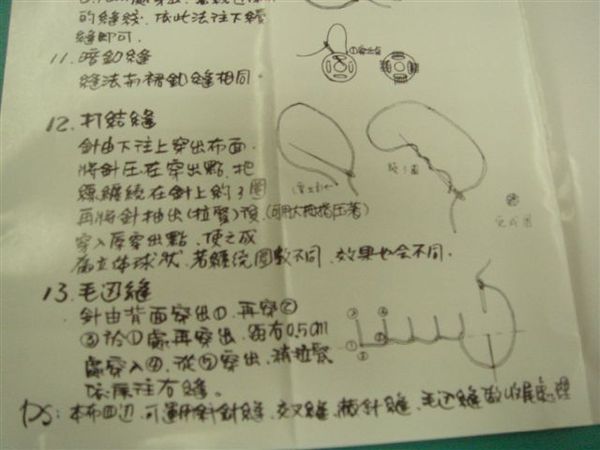 的縫紋,依此法往下縫
縫即可.
11.暗釦縫
縫法和裙釦縫相同.
12.打結縫
針由下往上穿出布面.
將針压在穿出點.把
線纏繞在針上約3圈
再將針抽出(拉緊)後.(可用大拇指压著)
穿入原穿出點、使之成
為立体球狀.若纏绕圈數不同、效果也会不同.
繞3圈
完成圖
13.毛边縫
針由背面穿出①、再穿②
③於①處再穿出、距右0.5cm
處穿入④、從⑤穿出、將拉緊
依序往右縫。
PS:本布四边、可運用斜針縫、交叉縫、横針縫、毛边縫做收尾處理